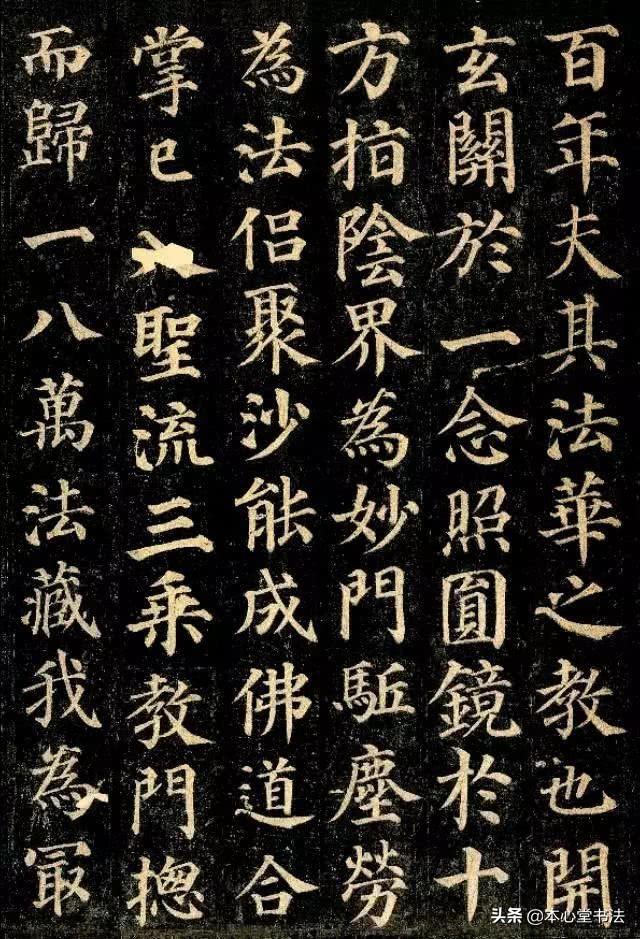 百年夫其法華之教也開
玄關於一念照圓鏡於十
方指陰界為妙門駈塵勞
為法侣聚沙能成佛道合
掌已入聖流三乘教門摠
而歸一八萬法藏我為冣
头条@本心堂书法